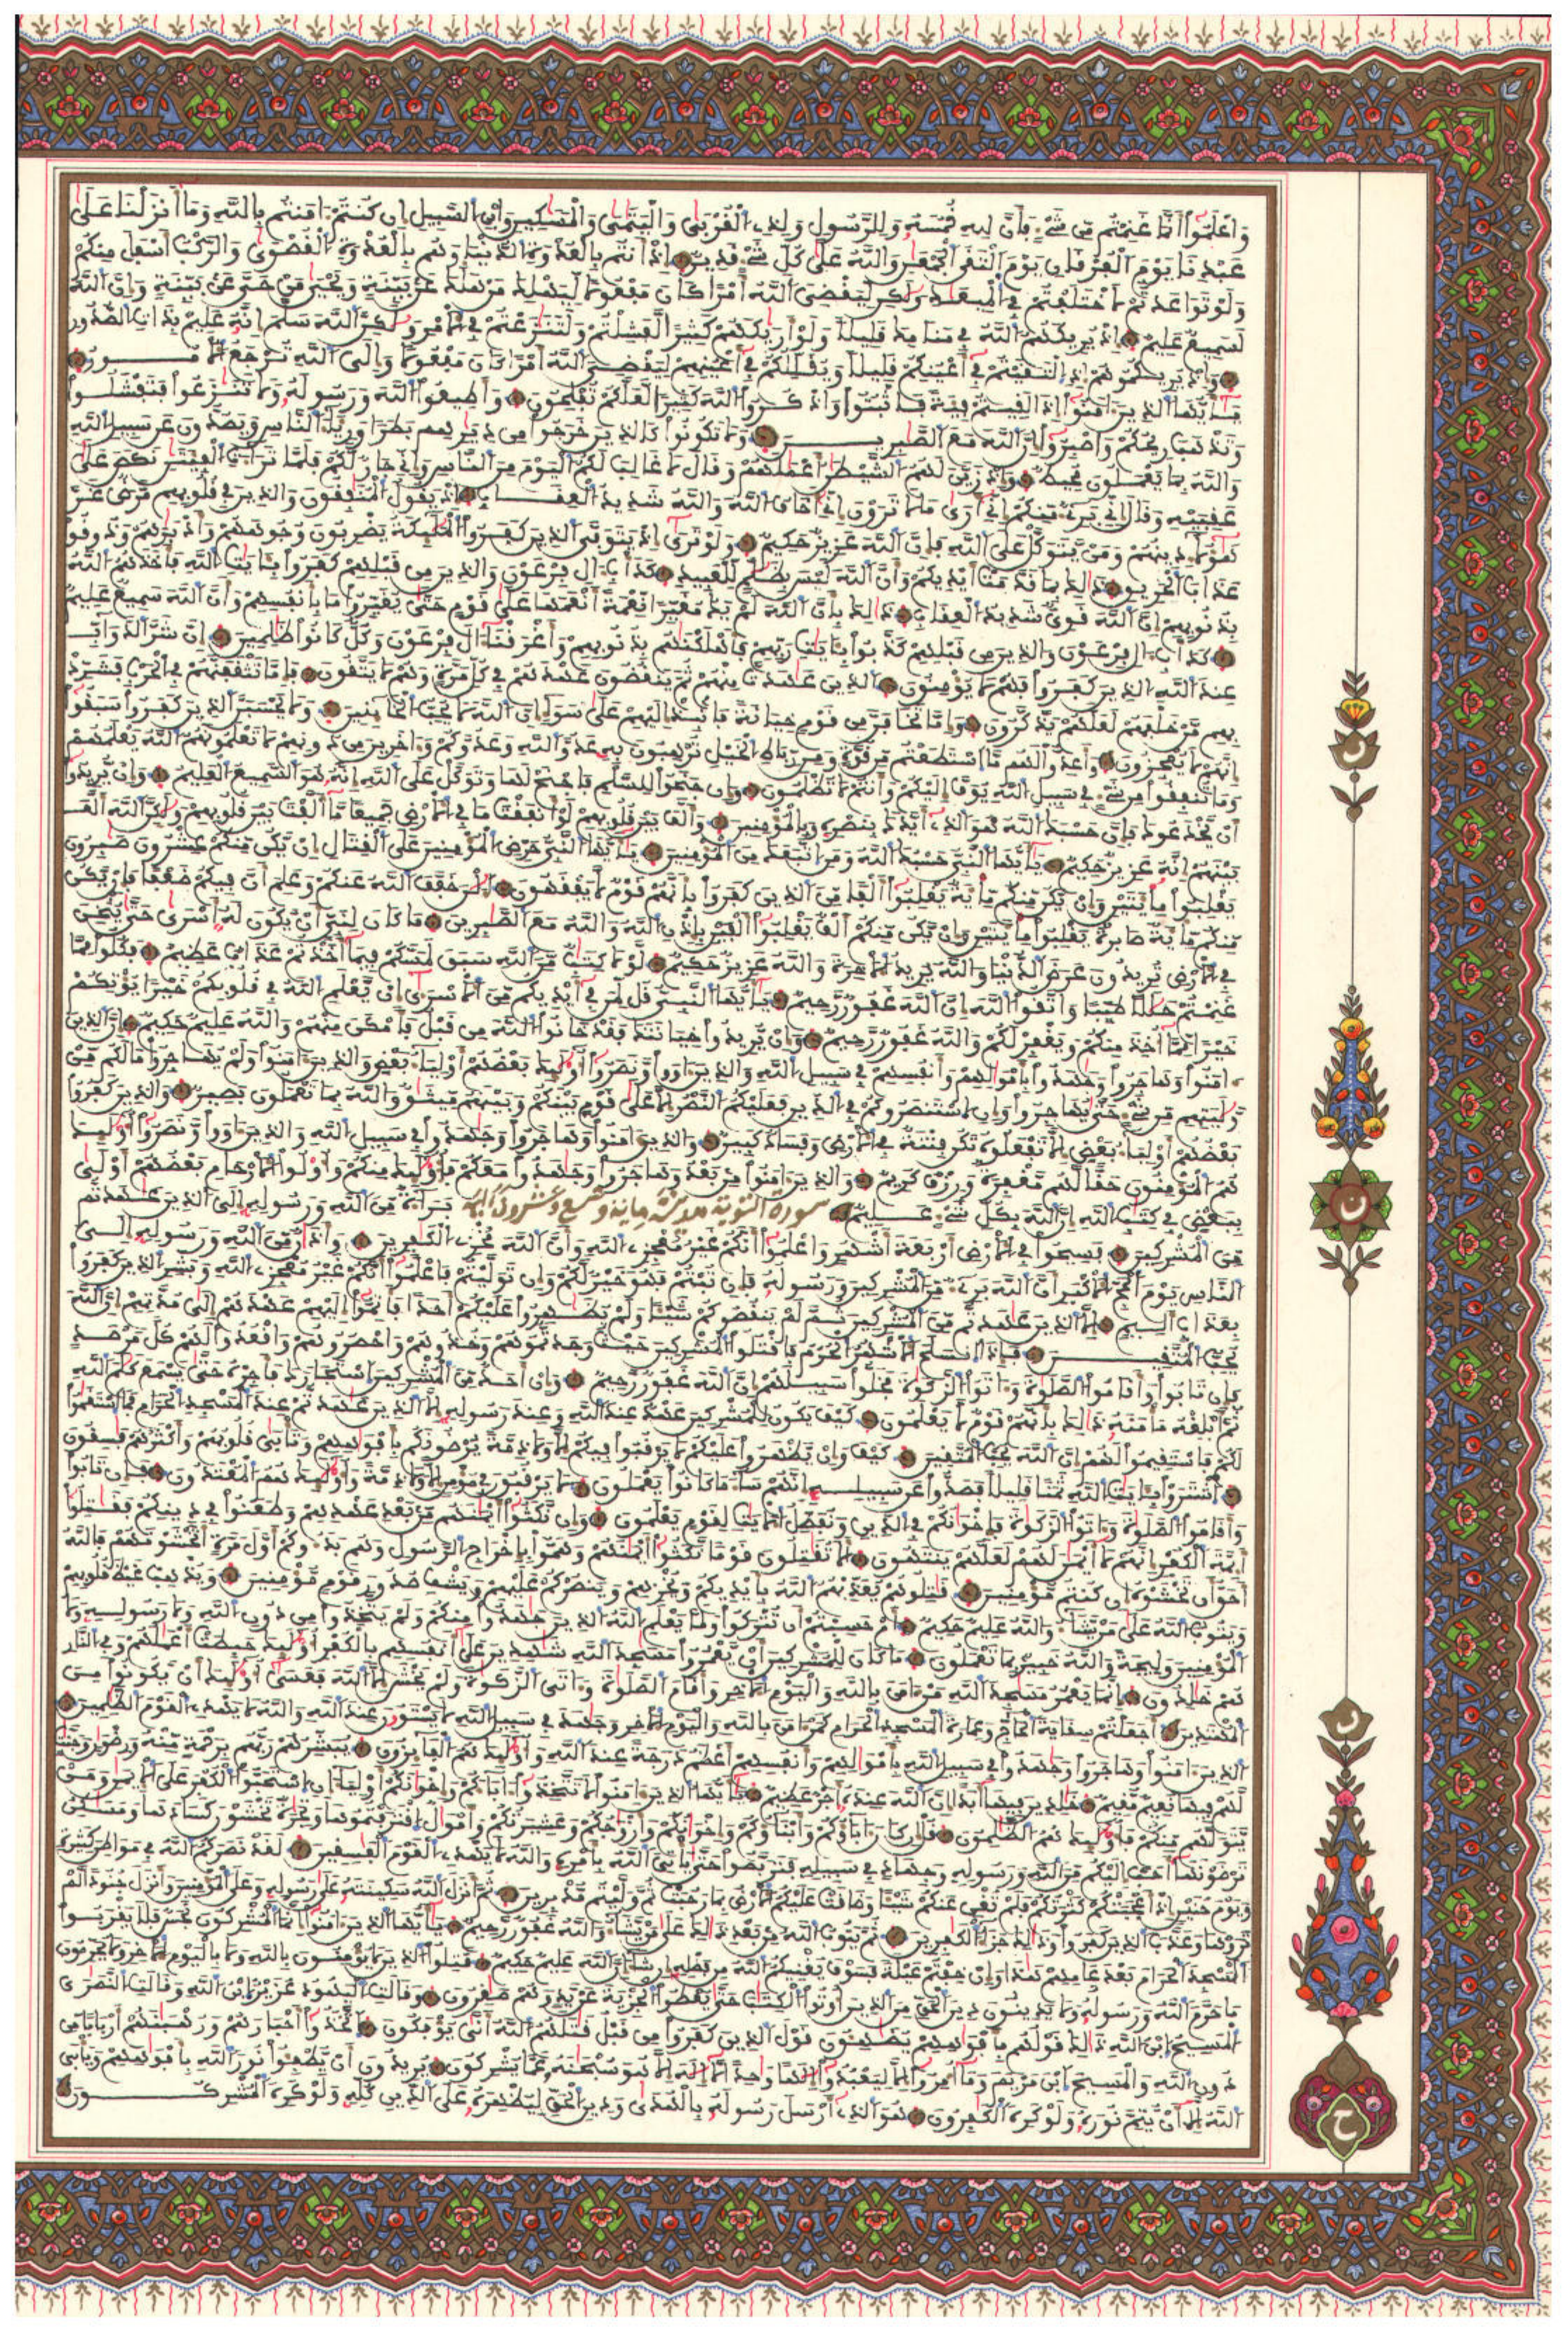 واعلموا أنما غنمتم من شيء فأن لله خمسه وللرسول ولذي القربى واليتمى والمسكين وابن السبيل إن كنتم ءامنتم بالله وما أنزلنا على
عبدنا يوم الفرقان يوم التقى الجمعن والله على كل شيء قدير إذ أنتم بالعدوة الدنيا وهم بالعدوة القصوى والركب أسفل منكم
ولو تواعدتم لاختلفتم في الميعد ولكن ليقضي الله أمرا كان مفعولا ليهلك من هلك عن بينة ويحيى من حي عن بينة وإن الله
لسميع عليم إذ يريكهم الله في منامك قليلا ولو أريكهم كثيرا لفشلتم ولتنزعتم في الأمر ولكن الله سلم إنه عليم بذات الصدور
وإذ يريكموهم إذ التقيتم في أعينكم قليلا ويقللكم في أعينهم ليقضي الله أمرا كان مفعولا وإلى الله ترجع الأمور
يأيها الذين ءامنوا إذا لقيتم فئة فاثبتوا واذكروا الله كثيرا لعلكم تفلحون وأطيعوا الله ورسوله ولا تنزعوا فتفشلوا
وتذهب ريحكم واصبروا إن الله مع الصبرين ولا تكونوا كالذين خرجوا من ديرهم بطرا ورئاء الناس ويصدون عن سبيل الله
والله بما يعملون محيط وإذ زين لهم الشيطن أعملهم وقال لا غالب لكم اليوم من الناس وإني جار لكم فلما تراءت الفئتن نكص على
عقبيه وقال إني بريء منكم إني أرى ما لا ترون إني أخاف الله والله شديد العقاب إذ يقول المنفقون والذين في قلوبهم مرض غر
هؤلاء دينهم ومن يتوكل على الله فإن الله عزيز حكيم ولو ترى إذ يتوفى الذين كفروا الملئكة يضربون وجوههم وأدبرهم وذوقوا
عذاب الحريق ذلك بما قدمت أيديكم وأن الله ليس بظلم للعبيد كدأب ءال فرعون والذين من قبلهم كفروا بئايت الله فأخذهم الله
بذنوبهم إن الله قوي شديد العقاب ذلك بأن الله لم يك مغيرا نعمة أنعمها على قوم حتى يغيروا ما بأنفسهم وأن الله سميع عليم
كدأب ءال فرعون والذين من قبلهم كذبوا بئايت ربهم فأهلكنهم بذنوبهم وأغرقنا ءال فرعون وكل كانوا ظلمين إن شر الدواب
عند الله الذين كفروا فهم لا يؤمنون الذين عهدت منهم ثم ينقضون عهدهم في كل مرة وهم لا يتقون فإما تثقفنهم في الحرب فشرد
بهم من خلفهم لعلهم يذكرون وإما تخافن من قوم خيانة فانبذ إليهم على سواء إن الله لا يحب الخائنين ولا تحسبن الذين كفروا سبقوا
إنهم لا يعجزون وأعدوا لهم ما استطعتم من قوة ومن رباط الخيل ترهبون به عدو الله وعدوكم وءاخرين من دونهم لا تعلمونهم الله يعلمهم
وما تنفقوا من شيء في سبيل الله يوف إليكم وأنتم لا تظلمون وإن جنحوا للسلم فاجنح لها وتوكل على الله إنه هو السميع العليم وإن يريدوا
أن يخدعوك فإن حسبك الله هو الذي أيدك بنصره وبالمؤمنين وألف بين قلوبهم لو أنفقت ما في الأرض جميعا ما ألفت بين قلوبهم ولكن الله ألف
بينهم إنه عزيز حكيم يأيها النبي حسبك الله ومن اتبعك من المؤمنين يأيها النبي حرض المؤمنين على القتال إن يكن منكم عشرون صبرون
يغلبوا مائتين وإن تكن منكم مائة يغلبوا ألفا من الذين كفروا بأنهم قوم لا يفقهون الن خفف الله عنكم وعلم أن فيكم ضعفا فإن تكن
منكم مائة صابرة يغلبوا مائتين وإن يكن منكم ألف يغلبوا ألفين بإذن الله والله مع الصبرين ما كان لنبي أن يكون له أسرى حتى يثخن
في الأرض تريدون عرض الدنيا والله يريد الأخرة والله عزيز حكيم لولا كتب من الله سبق لمسكم فيما أخذتم عذاب عظيم فكلوا مما
غنمتم حللا طيبا واتقوا الله إن الله غفور رحيم يأيها النبي قل لمن في أيديكم من الأسرى إن يعلم الله في قلوبكم خيرا يؤتكم
خيرا مما أخذ منكم ويغفر لكم والله غفور رحيم وإن يريدوا خيانتك فقد خانوا الله من قبل فأمكن منهم والله عليم حكيم إن الذين
ءامنوا وهاجروا وجهدوا بأمولهم وأنفسهم في سبيل الله والذين ءاووا ونصروا أولئك بعضهم أولياء بعض والذين ءامنوا ولم يهاجروا ما لكم من
وليتهم من شيء حتى يهاجروا وإن استنصروكم في الدين فعليكم النصر إلا على قوم بينكم وبينهم ميثق والله بما تعملون بصير والذين كفروا
بعضهم أولياء بعض إلا تفعلوه تكن فتنة في الأرض وفساد كبير والذين ءامنوا وهاجروا وجهدوا في سبيل الله والذين ءاووا ونصروا أولئك
هم المؤمنون حقا لهم مغفرة ورزق كريم والذين ءامنوا من بعد وهاجروا وجهدوا معكم فأولئك منكم وأولوا الأرحام بعضهم أولى
ببعض في كتب الله إن الله بكل شيء عليم سورة التوبة مدنية مائة وتسع وعشرون آية براءة من الله ورسوله إلى الذين عهدتم
من المشركين فسيحوا في الأرض أربعة أشهر واعلموا أنكم غير معجزي الله وأن الله مخزي الكفرين وأذان من الله ورسوله إلى
الناس يوم الحج الأكبر أن الله بريء من المشركين ورسوله فإن تبتم فهو خير لكم وإن توليتم فاعلموا أنكم غير معجزي الله وبشر الذين كفروا
بعذاب أليم إلا الذين عهدتم من المشركين ثم لم ينقصوكم شيئا ولم يظهروا عليكم أحدا فأتموا إليهم عهدهم إلى مدتهم إن الله
يحب المتقين فإذا انسلخ الأشهر الحرم فاقتلوا المشركين حيث وجدتموهم وخذوهم واحصروهم واقعدوا لهم كل مرصد
فإن تابوا وأقاموا الصلوة وءاتوا الزكوة فخلوا سبيلهم إن الله غفور رحيم وإن أحد من المشركين استجارك فأجره حتى يسمع كلم الله
ثم أبلغه مأمنه ذلك بأنهم قوم لا يعلمون كيف يكون للمشركين عهد عند الله وعند رسوله إلا الذين عهدتم عند المسجد الحرام فما استقموا
لكم فاستقيموا لهم إن الله يحب المتقين كيف وإن يظهروا عليكم لا يرقبوا فيكم إلا ولا ذمة يرضونكم بأفوههم وتأبى قلوبهم وأكثرهم فسقون
اشتروا بئايت الله ثمنا قليلا فصدوا عن سبيله إنهم ساء ما كانوا يعملون لا يرقبون في مؤمن إلا ولا ذمة وأولئك هم المعتدون فإن تابوا
وأقاموا الصلوة وءاتوا الزكوة فإخوانكم في الدين ونفصل الأيت لقوم يعلمون وإن نكثوا أيمنهم من بعد عهدهم وطعنوا في دينكم فقتلوا
أئمة الكفر إنهم لا أيمن لهم لعلهم ينتهون ألا تقتلون قوما نكثوا أيمنهم وهموا بإخراج الرسول وهم بدءوكم أول مرة أتخشونهم فالله
أحق أن تخشوه إن كنتم مؤمنين قتلوهم يعذبهم الله بأيديكم ويخزهم وينصركم عليهم ويشف صدور قوم مؤمنين ويذهب غيظ قلوبهم
ويتوب الله على من يشاء والله عليم حكيم أم حسبتم أن تتركوا ولما يعلم الله الذين جهدوا منكم ولم يتخذوا من دون الله ولا رسوله ولا
المؤمنين وليجة والله خبير بما تعملون ما كان للمشركين أن يعمروا مسجد الله شهدين على أنفسهم بالكفر أولئك حبطت أعملهم وفي النار
هم خلدون إنما يعمر مسجد الله من ءامن بالله واليوم الأخر وأقام الصلوة وءاتى الزكوة ولم يخش إلا الله فعسى أولئك أن يكونوا من
المهتدين أجعلتم سقاية الحاج وعمارة المسجد الحرام كمن ءامن بالله واليوم الأخر وجهد في سبيل الله لا يستون عند الله والله لا يهدي القوم الظلمين
الذين ءامنوا وهاجروا وجهدوا في سبيل الله بأمولهم وأنفسهم أعظم درجة عند الله وأولئك هم الفائزون يبشرهم ربهم برحمة منه ورضون وجنت
لهم فيها نعيم مقيم خلدين فيها أبدا إن الله عنده أجر عظيم يأيها الذين ءامنوا لا تتخذوا ءاباءكم وإخوانكم أولياء إن استحبوا الكفر على الإيمن ومن
يتولهم منكم فأولئك هم الظلمون قل إن كان ءاباؤكم وأبناؤكم وإخوانكم وأزوجكم وعشيرتكم وأموال اقترفتموها وتجرة تخشون كسادها ومسكن
ترضونها أحب إليكم من الله ورسوله وجهاد في سبيله فتربصوا حتى يأتي الله بأمره والله لا يهدي القوم الفسقين لقد نصركم الله في مواطن كثيرة
ويوم حنين إذ أعجبتكم كثرتكم فلم تغن عنكم شيئا وضاقت عليكم الأرض بما رحبت ثم وليتم مدبرين ثم أنزل الله سكينته على رسوله وعلى المؤمنين وأنزل جنودا لم
تروها وعذب الذين كفروا وذلك جزاء الكفرين ثم يتوب الله من بعد ذلك على من يشاء والله غفور رحيم يأيها الذين ءامنوا إنما المشركون نجس فلا يقربوا
المسجد الحرام بعد عامهم هذا وإن خفتم عيلة فسوف يغنيكم الله من فضله إن شاء إن الله عليم حكيم قتلوا الذين لا يؤمنون بالله ولا باليوم الأخر ولا يحرمون
ما حرم الله ورسوله ولا يدينون دين الحق من الذين أوتوا الكتب حتى يعطوا الجزية عن يد وهم صغرون وقالت اليهود عزير ابن الله وقالت النصرى
المسيح ابن الله ذلك قولهم بأفوههم يضهون قول الذين كفروا من قبل قتلهم الله أنى يؤفكون اتخذوا أحبارهم ورهبنهم أربابا من
دون الله والمسيح ابن مريم وما أمروا إلا ليعبدوا إلها وحدا لا إله إلا هو سبحنه عما يشركون يريدون أن يطفئوا نور الله بأفوههم ويأبى
الله إلا أن يتم نوره ولو كره الكفرون هو الذي أرسل رسوله بالهدى ودين الحق ليظهره على الدين كله ولو كره المشركون